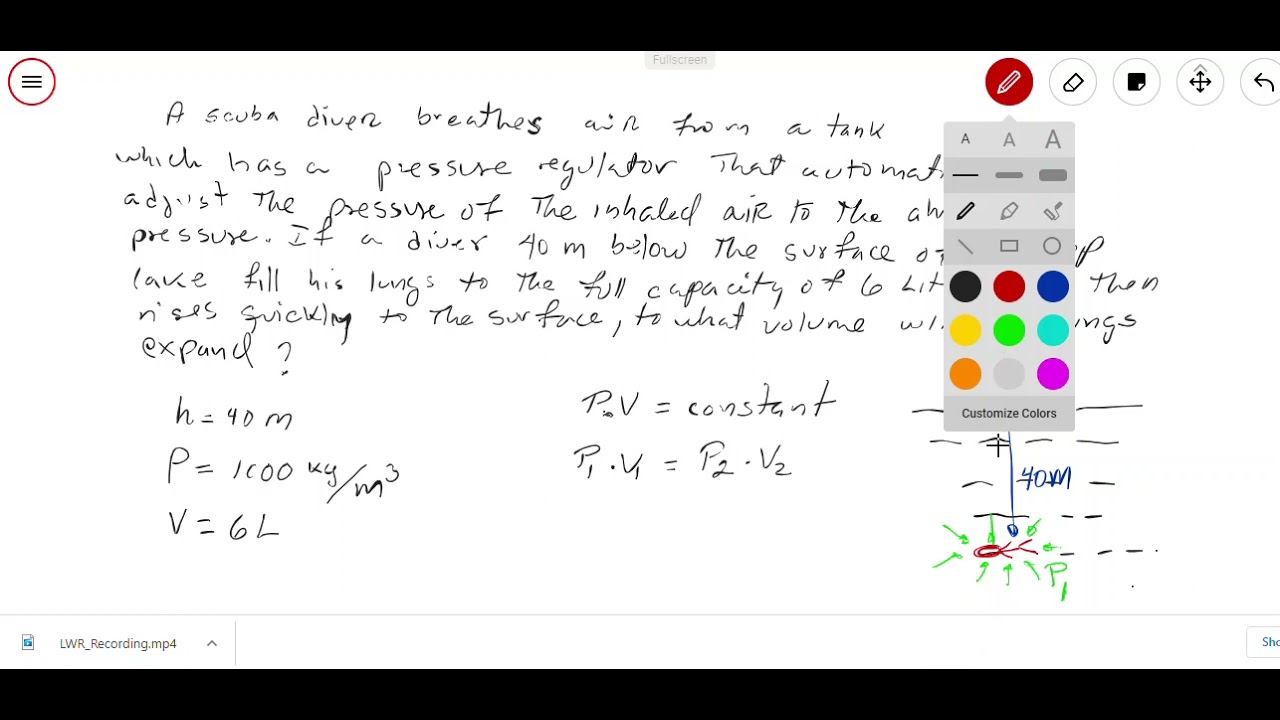 Fullscreen
A scuba diver breathes air from a tank
which has a pressure regulator That automat
adjust The pressure of The inhaled air to The
pressure. If a diver 40 m below The surface
lake fill his lungs to the full capacity of 6 Lit Then
rises quickly to The surface, to what volume
expand?
h = 40 m
ρ = 1000 kg/m³
V = 6 L
P.V = constant
P₁ · V₁ = P₂ · V₂
A A A
Customize Colors
40m
P₁
LWR_Recording.mp4